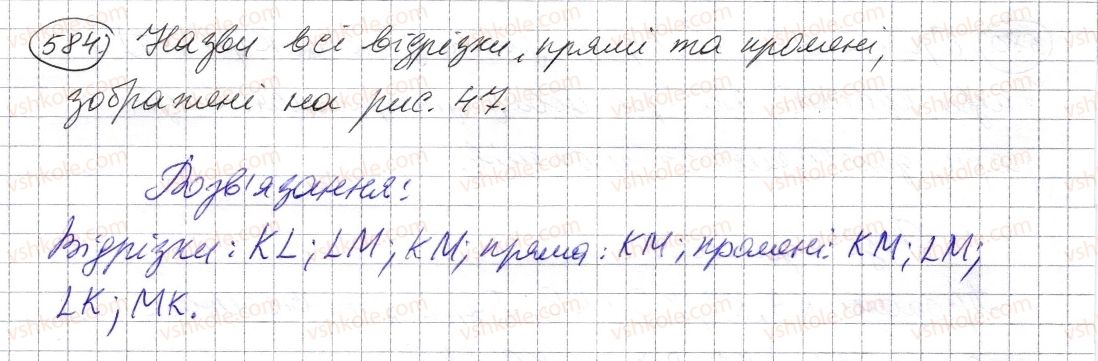 584) Назви всі відрізки, прямі та промені,
зображені на рис. 47.
Розв'язання:
Відрізки: KL; LM; KM; пряма: KM; промені: KM; LM;
LK; MK.